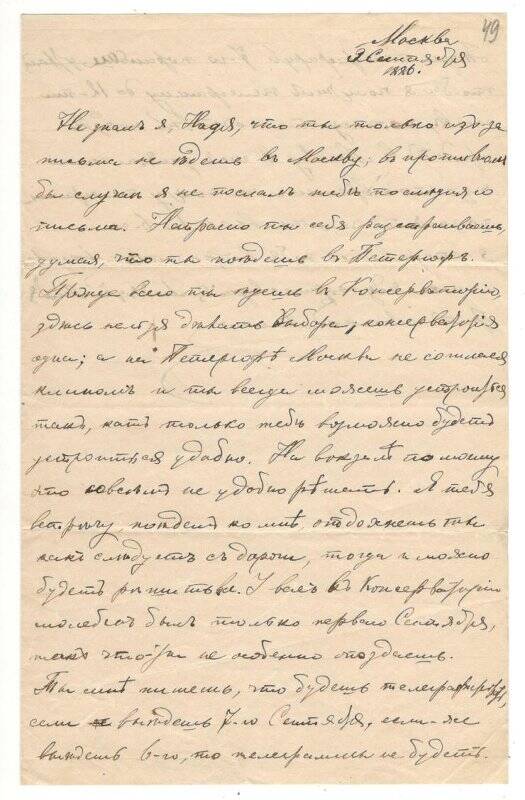 49
Москва
3 Сентября
1886.
Не зналъ я, Надя, что ты только изъ-за
письма не ѣдешь въ Москву; въ противномъ
бы случаѣ я не послалъ тебѣ послѣдняго
письма. Напрасно ты себя разстраиваешь,
думая, что ты поѣдешь въ Петергофъ.
Прежде всего ты ѣдешь въ Консерваторію,
здѣсь нельзя дѣлать выбора, консерваторія
одна; а на Петергофѣ Москва не сошлася
клиномъ и ты всегда можешь устроиться
такъ, какъ только тебѣ возможно будетъ
устроиться удобно. На вокзалѣ по моему
это совсѣмъ не удобно рѣшать. Я тебя
встрѣчу, поѣдемъ ко мнѣ, отдохнешь ты
какъ слѣдуетъ съ дороги, тогда и можно
будетъ рѣшить. У васъ въ Консерваторіи
молебенъ былъ только перваго Сентября,
такъ что ты не особенно опоздаешь.
Ты мнѣ пишешь, что будешь телеграфировать,
если выѣдешь 7-го Сентября, если-же
выѣдешь 6-го, то телеграммы не будетъ.